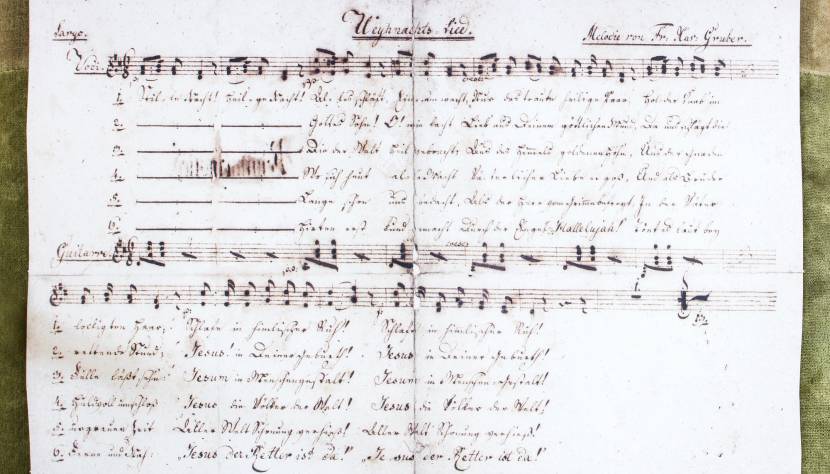 Largo. Weyhnachts-Lied. Melodie von Fr. Xav. Gruber.
Voci
1. Stil-le Nacht! Heil-ge Nacht! Al-les schläft, Einsam wacht, Nur das traute heilige Paar. Holder Knab' im
2. Gottes Sohn! O! wie lacht Lieb aus Deinem göttlichen Mund, Da uns schlägt die
3. Die der Welt Heil gebracht, Aus des Himmels goldenen Höhn, Aus der Gnaden
4. Wo sich heut alle Macht Väterlicher Liebe ergoß, Und als Bruder
5. Lange schon uns bedacht, Als der Herr vom Grimme befreyt, In der Väter
6. Hirten erst kund gemacht Durch der Engel Hallelujah! Tönt es laut bey
Guitarre
1. lockigten Haar; Schlafe in himlischer Ruh! Schlafe in himlischer Ruh!
2. rettende Stund; Jesus! in Deiner Geburth! Jesus in Deiner Geburth!
3. Fülle läßt sehn: Jesum in Menschengestalt! Jesum in Menschengestalt!
4. Huldvoll umschloß Jesus die Völker der Welt! Jesus die Völker der Welt!
5. urgrauen Zeit Aller Welt Schonung verhieß! Aller Welt Schonung verhieß!
6. Ferne und Nah: "Jesus der Retter ist da!" "Jesus der Retter ist da!"